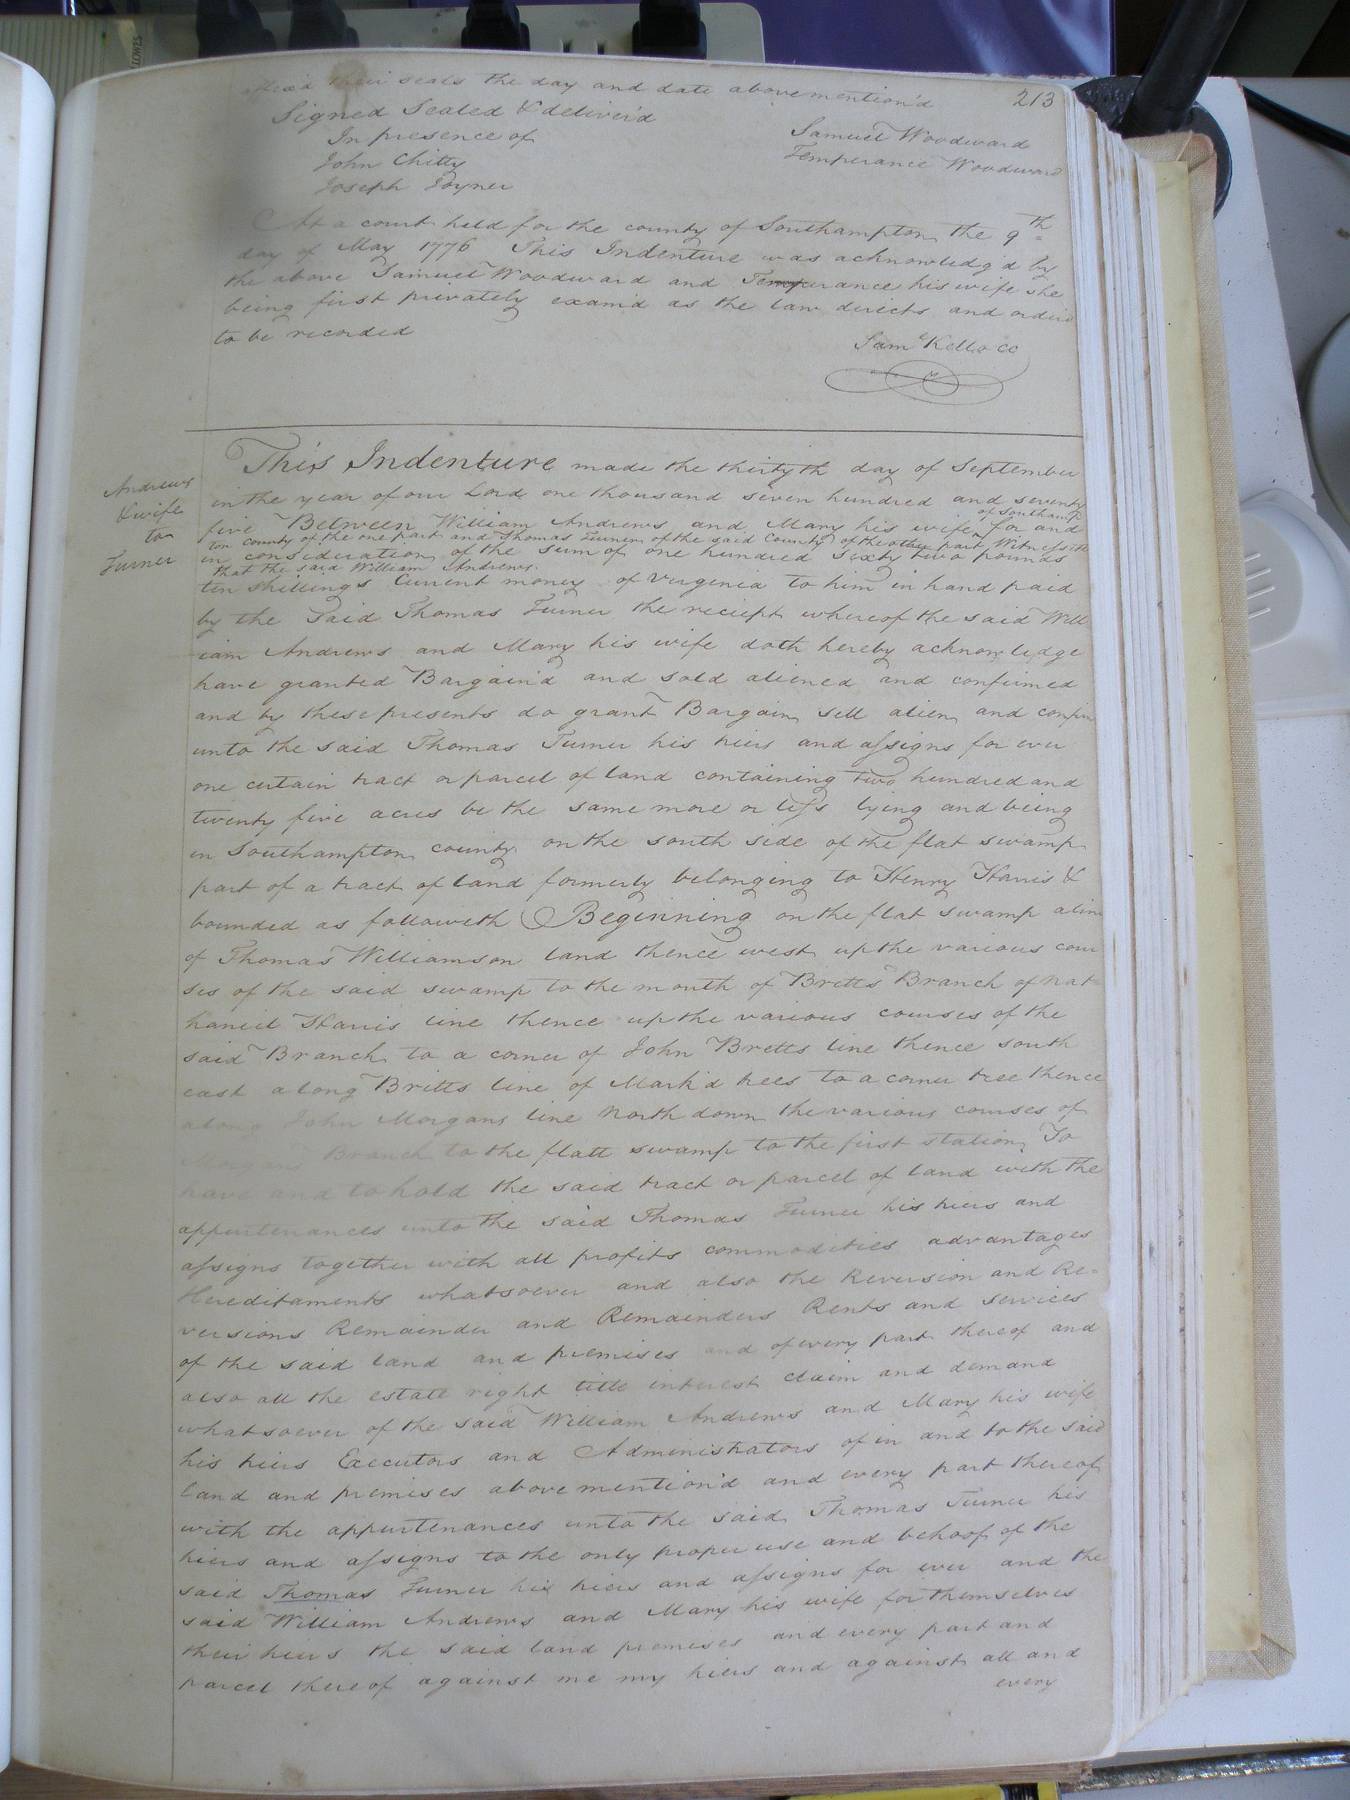 affix'd their seals the day and date abovemention'd
213
Signed Sealed & deliver'd
In presence of
John Chitty
Joseph Joyner
Samuel Woodward
Temperance Woodward
At a court held for the county of Southampton the 9th
day of May 1776 This Indenture was acknowledg'd by
the above Samuel Woodward and Temperance his wife she
being first privately exam'd as the law directs and order'd
to be recorded
Sam Kello CC
Andrews
& wife
to
Turner
This Indenture made the thirtyth day of September
in the year of our Lord one thousand seven hundred and seventy
of Southamp
five Between William Andrews and Mary his wife for and
ton county of the one part and Thomas Turner of the said County of the other part Witnesseth
in consideration of the sum of one hundred sixty two pounds
that the said William Andrews
ten shillings Current money of Virginia to him in hand paid
by the Said Thomas Turner the reciept whereof the said Will
iam Andrews and Mary his wife doth hereby acknowledge
have granted Bargain'd and sold aliened and confirmed
and by these presents do grant Bargain sell alien and confirm
unto the said Thomas Turner his heirs and assigns for ever
one certain tract or parcel of land containing two hundred and
twenty five acres be the same more or less lying and being
in Southampton county on the south side of the flat swamp
part of a tract of land formerly belonging to Henry Harris &
bounded as followeth Beginning on the flat swamp a line
of Thomas Williamson land thence west up the various cour
ses of the said swamp to the mouth of Bretts Branch of Nat
haniel Harris line thence up the various courses of the
said Branch to a corner of John Bretts line thence south
east along Britts line of Mark'd trees to a corner tree thence
along John Morgans line North down the various courses of
Morgans Branch to the flatt swamp to the first station To
have and to hold the said tract or parcel of land with the
appurtenances unto the said Thomas Turner his heirs and
assigns together with all profits commodities advantages
Hereditaments whatsoever and also the Reversion and Re-
versions Remainder and Remainders Rents and services
of the said land and premises and of every part thereof and
also all the estate right title interest claim and demand
whatsoever of the said William Andrews and Mary his wife
his heirs Executors and Administrators of in and to the said
land and premises abovemention'd and every part thereof
with the appurtenances unto the said Thomas Turner his
heirs and assigns to the only proper use and behoof of the
said Thomas Turner his heirs and assigns for ever and the
said William Andrews and Mary his wife for themselves
their heirs the said land premises and every part and
parcel thereof against me my heirs and against all and
every